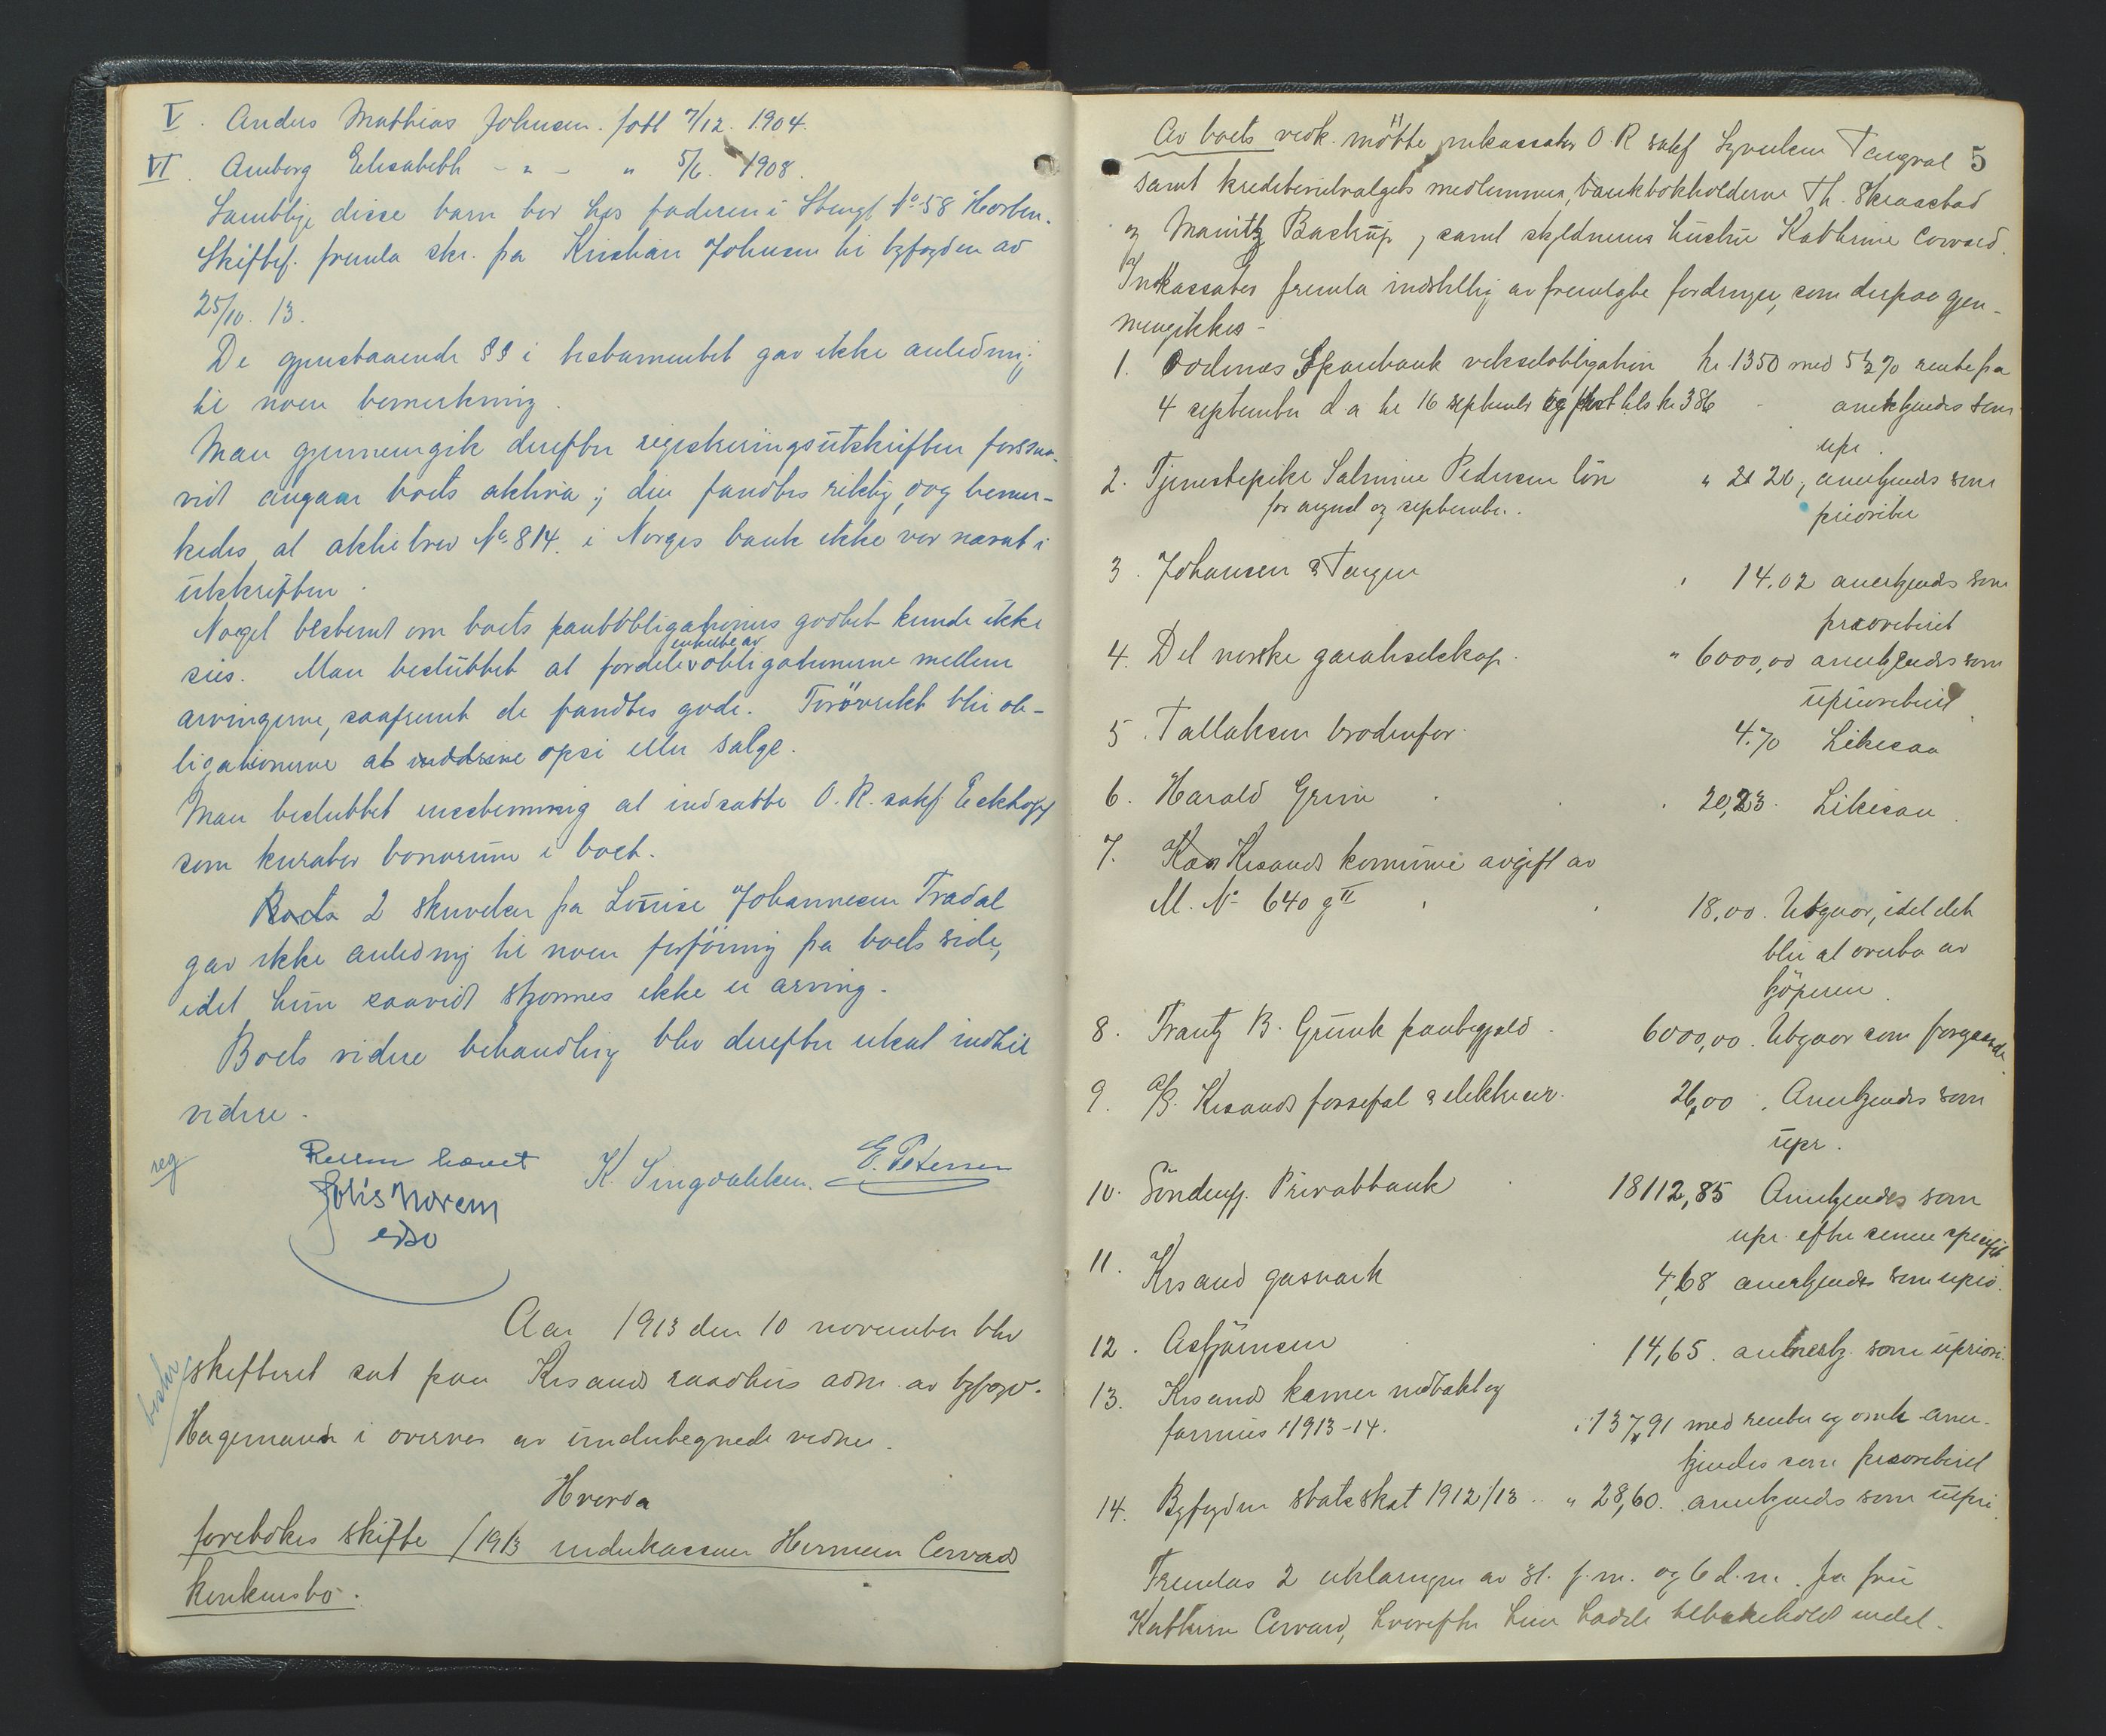 V. Anders Mathias Johnsen. født 7/12. 1904.
VI. Amborg Elisabeth - " - " 5/6. 1908.
Samtlige disse barn bor hos faderen i Strengt No 58 Horten.
Skiftef. fremla skr. fra Kristian Johnsen til byfogden av
25/10. 13.
De gjenstaaende §§ i testamentet gav ikke anledning
til noen bemerkning.
Man gjennemgik derefter registreringsutskriften forsaa-
vidt angaar boets aktiva; den fandtes riktig, dog bemer-
kedes at aktiebrev No 814 i Norges bank ikke var nævnt i
utskriften.
Noget bestemt om boets pantobligationers godhet kunde ikke
sies. Man besluttet at fordele enkelte av obligationerne mellem
arvingerne, saafremt de fandtes gode. Forøvrikt blir ob-
ligationerne at inddrive opsi eller sælge.
Man besluttet enstemmig at indsætte O.R. sakf. Eckhoff
som kurator bonorum i boet.
Boets 2 skrivelser fra Louise Johannesen Tradal
gav ikke anledning til noen forføining fra boets side,
idet hun saavidt skjønnes ikke er arving.
Boets videre behandling blev derefter utsat indtil
videre.
reg
Retten hævet
K. Syngdahlsen. E. Petersen
Johs Norem
edsv
Aar 1913 den 10 november blev
beskr
skifteret sat paa Krsands raadhus adm. av byfogd
Hagemann i overvær av undertegnede vidner.
Hvorda
foretokes skifte /1913 underkasserer Herman Cervads
konkursbo.
5
Av boets vedk. møtte inkassator O.R sakf Syvertsen Tangval
samt kreditorutvalgets medlemmer, bankbokholderne Th. Skraastad
og Mauritz Bastrup, samt skyldnerens hustru Kathrine Cervard.
Inkassator fremla indstilling av fremlagte fordringer, som derpaa gjen-
nemgikkes -
1. Oddernes Sparebank vekselobligation kr 1350 med 5½ % rente fra
4 september d a til 16 september og prot tils kr. 386 - anerkjendes som
upr.
2. Tjenestepike Salmine Pedersen løn " 20, anerkjendes som
for august og september. prioriter
3. Johansen & Tangen " 14.02 anerkjendes som
prioritert
4. Det norske garantiselskap. " 6000,00 anerkjendes som
uprioritert
5. Tallaksen brødrenfor. 4.70 Likesaa
6. Harald Grim 20,23. Likesaa
7. Krsands komune avgift av
M. No 640 g II 18,00. Utgaar, idet det
blir at overta av
kjøperen
8. Frantz B. Grunk pantegjeld. 6000,00. Utgaar som foregaaende.
9. A/S. Krsands fossefal & elektricer. 26,00. Anerkjendes som
upr.
10. Sönderfj. Privatbank 18112,85 Anerkjendes som
upr. efter senere specifik
11. Krsand gasværk 4,68 anerkjendes som uprio.
12. Asbjørnsen 14,65. anerkj. som upriori.
13. Krsands kæmn indtækt og
formues 1913-14. 137,91 med renter og omk. aner-
kjendes som prioritert
14. Byfogden statsskat 1912/13 " 28,60. anerkjendes som upri.
Fremlas 2 erklæringer av 31. f.m. og 6 d.m. fra fru
Kathrine Cervard, hvorefter hun hadde tilbakeholdt endel.